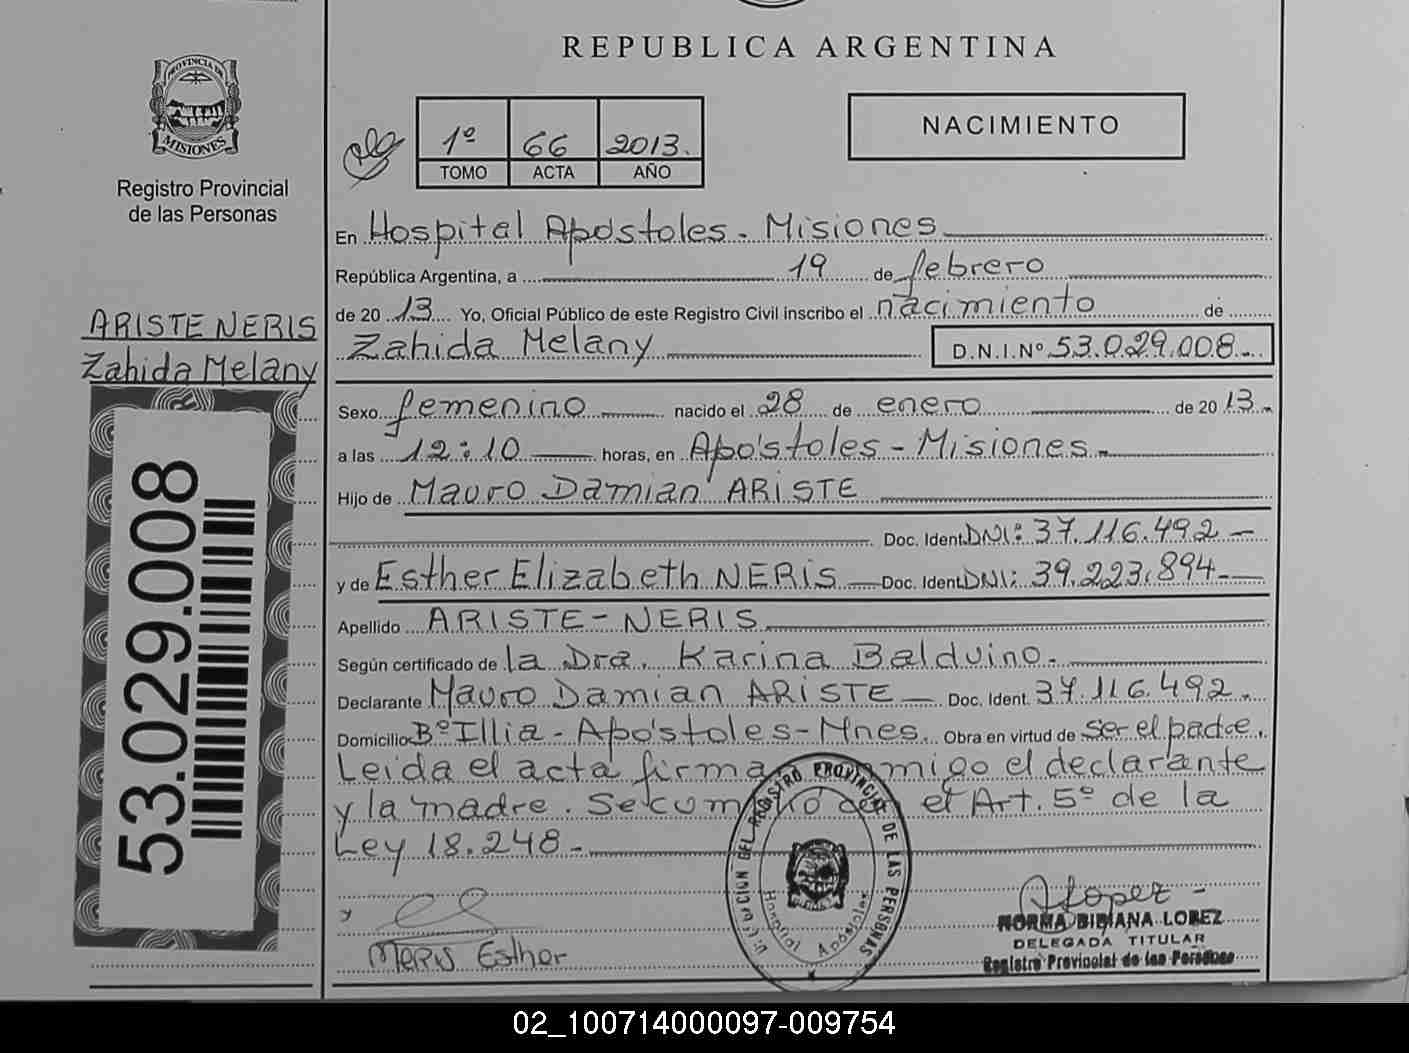 PROVINCIA DE
MISIONES
Registro Provincial
de las Personas
ARISTE NERIS
Zahida Melany
53.029.008
REPUBLICA ARGENTINA
1º 66 2013.
TOMO ACTA AÑO
NACIMIENTO
En Hospital Apóstoles - Misiones
República Argentina, a 19 de febrero
de 20 13 Yo, Oficial Público de este Registro Civil inscribo el nacimiento de
Zahida Melany D.N.I.Nº 53.029.008-
Sexo femenino nacido el 28 de enero de 20 13-
a las 12:10 horas, en Apóstoles - Misiones-
Hijo de Mauro Damian ARISTE
Doc. Ident. DNI: 37.116.492-
y de Esther Elizabeth NERIS Doc. Ident. DNI: 39.223.894-
Apellido ARISTE-NERIS
Según certificado de la Dra. Karina Balduino-
Declarante Mauro Damian ARISTE Doc. Ident. 37.116.492-
Domicilio Bº Illia - Apóstoles - Mnes. Obra en virtud de ser el padre.
Leida el acta firma conmigo el declarante
y la madre. Se cumplió con el Art. 5º de la
Ley 18.248-
DEL REGISTRO PROVINCIAL DE LAS PERSONAS
Hospital Apóstoles
NERIS Esther
ALopez
NORMA BIBIANA LOPEZ
DELEGADA TITULAR
Registro Provincial de las Personas
02_100714000097-009754